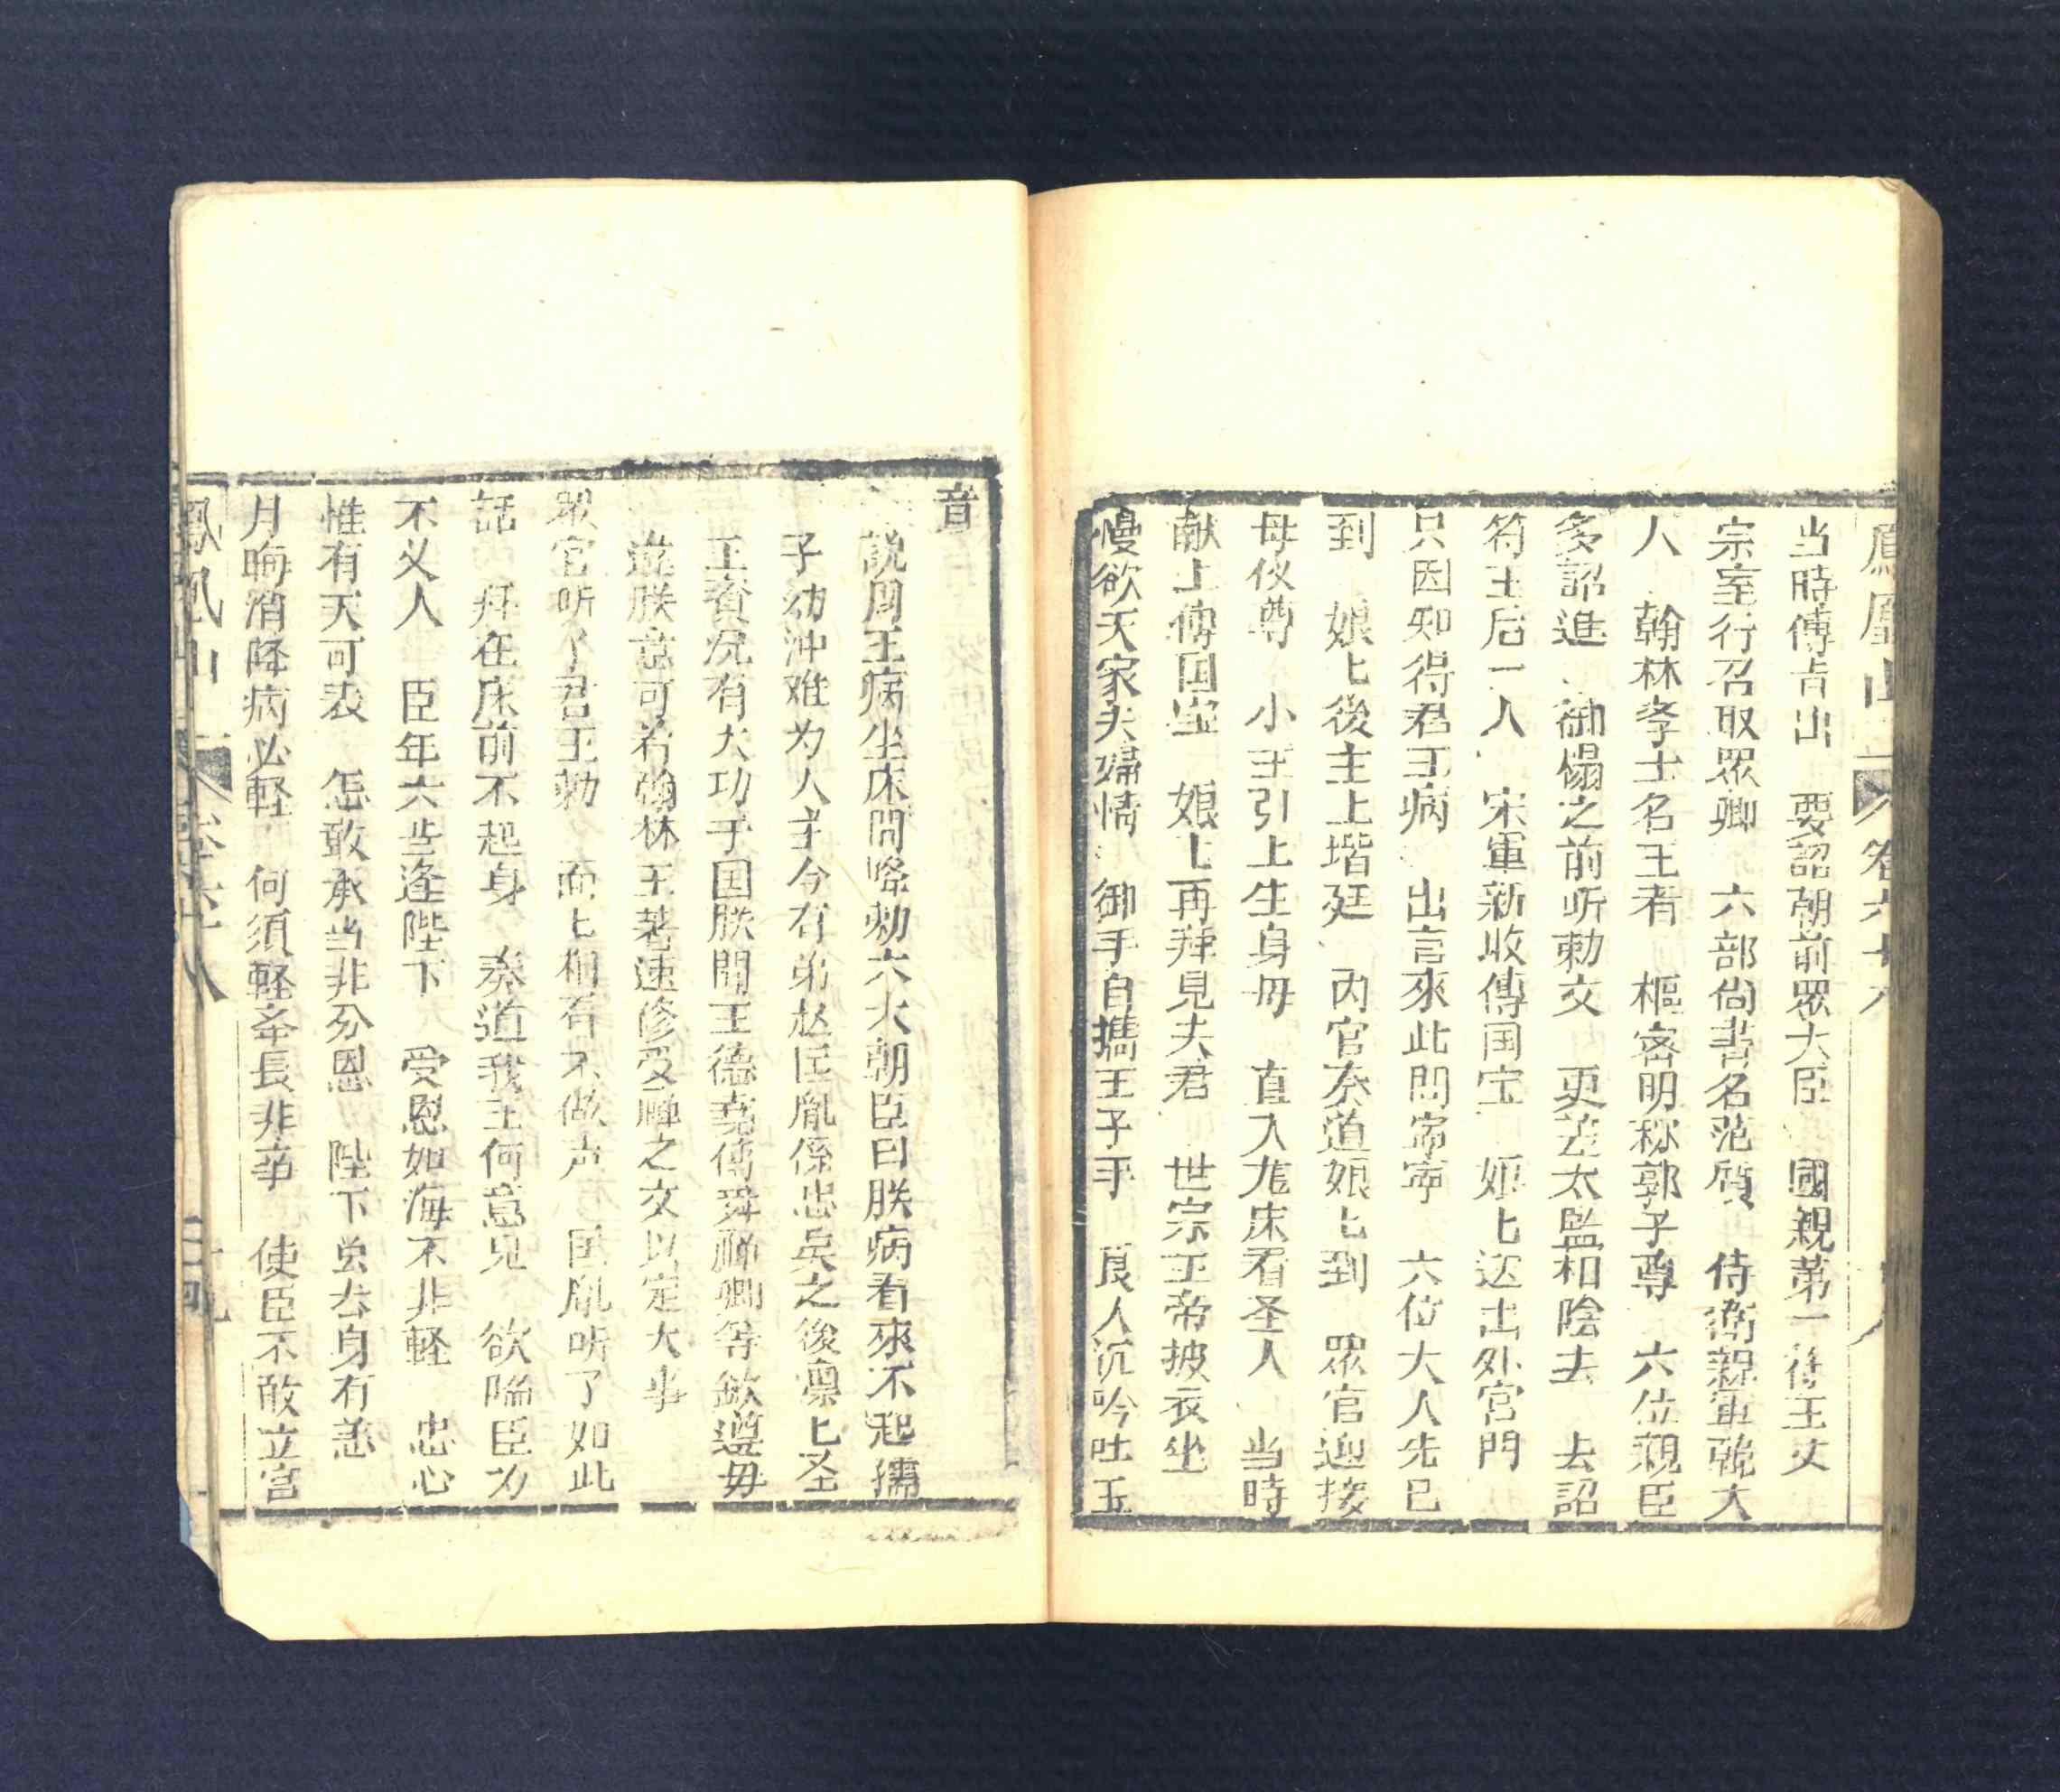 鳳凰山 卷六十八
当時傳旨出 要詔朝前眾大臣 國親第一符王丈
宗室行召取眾卿 六部尚書名范質 侍衛親軍韓大
人 翰林孝士名王者 樞密明称郭子尊 六位親臣
多詔進 御榻之前听勅文 更差太監和陰去 去詔
符王后一人 宋軍新收傳国宝 娘匕迓出外宮門
只因知得君王病 出言來此問帝寧 六位大人先已
到 娘匕後主上堦廷 内官奏道娘匕到 眾官迎接
母仪尊 小王引上生身母 直入龙床看圣人 当時
献上傳国宝 娘匕再拜見夫君 世宗王帝披衣坐
慢欲天家夫婦情 御手自攜王子手 良人沉吟吐玉
音
說周王病坐床間降勅六大朝臣曰朕病看來不起孺
子幼沖难为人主今有弟赵匡胤係忠吳之後禀匕圣
王資況有大功于国朕聞王德堯傳舜禅卿等欽遵毋
違朕意可着翰林王著速修受禅之文以定大事
眾官听了君王勅 面匕相看不做声 匡胤听了如此
話 拜在床前不起身 奏道我王何意見 欲陷臣为
不义人 臣年六些逢陛下 受恩如海不非軽 忠心
惟有天可表 怎敢承当非分恩 陛下虽去身有恙
月晦消降病必軽 何須軽弃長非辛 使臣不敢立宮
鳳凰山 卷六十八 二十四